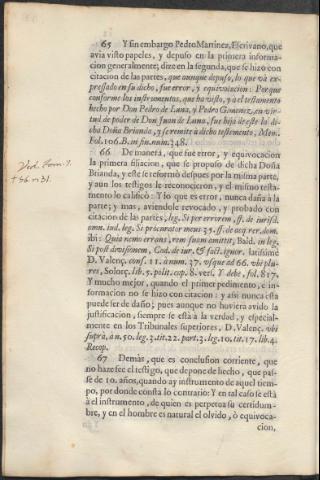 65 Y sin embargo Pedro Martinez, Escrivano, que
avia visto papeles, y depuso en la primera informa-
cion generalmente; dize en la segunda, que se hizo con
citacion de las partes, que aunque depuso, lo que và ex-
pressado en su dicho, fue error, y equivocacion: Porque
conforme los instrumentos, que ha visto, y à el testamento
hecho por Don Pedro de Luna, y Pedro Gimenez, en vir-
tud de poder de Don Juan de Luna, fue hija de este la di-
cha Doña Brianda, y se remite à dicho testamento, Mem.
Fol. 106. B. in fin. num. 348.
66 De manera, que fue error, y equivocacion
la primera filiacion, que se propuso de dicha Doña
Brianda, y este se reformò despues por la misma parte,
y aun los testigos le reconocieron, y el mismo testa-
mento lo calificò: Y lo que es error, nunca daña à la
parte; y mas, aviendole revocado, y probado con
citacion de las partes, leg. Si per errorem, ff. de iurisd.
omn. iud. leg. Si procurator meus 35. ff. de acq. rer. dom.
ibi: Quia nemo errans, rem suam amittit, Bald. in leg.
Si post divisionem, Cod. de iur. & fact. ignor. latissime
D. Valenç. cons. 11. à num. 37. usque ad 66. ubi plu-
res, Solorç. lib. 5. polit. cap. 8. vers. Y debe, fol. 817.
Y mucho mejor, quando el primer pedimento, e in-
formacion no se hizo con citacion: y assi nunca esta
puede ser de daño; pues aunque no huviera avido la
justificacion, siempre se està à la verdad, y especial-
mente en los Tribunales superiores, D. Valenç. ubi
suprà, à n. 50. leg. 3. tit. 22. part. 3. leg. 10. tit. 17. lib. 4.
Recop.
67 Demàs, que es conclusion corriente, que
no haze fee el testigo, que depone de hecho, que pas-
se de 10. años, quando ay instrumento de aquel tiem-
po, por donde consta lo contrario: Y en tal caso se està
à el instrumento, de quien es perpetua su certidum-
bre, y en el hombre es natural el olvido, ò equivoca-
cion,